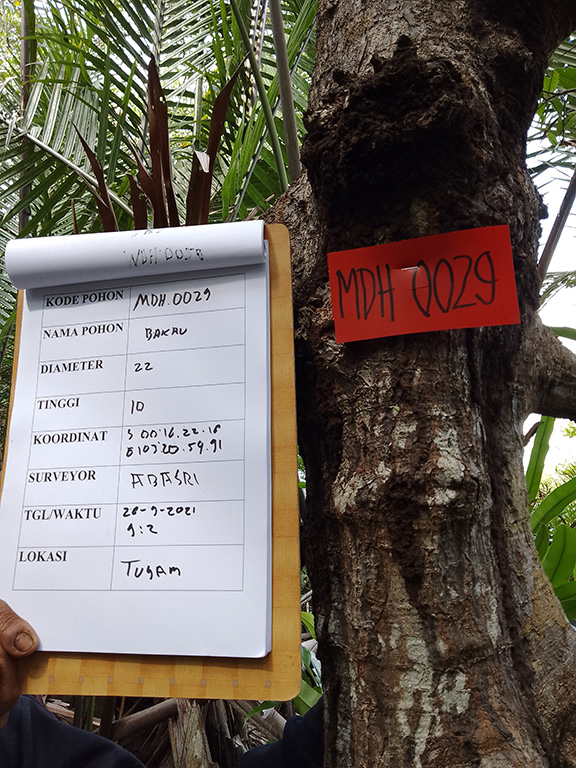 KODE POHON MDH.0029
NAMA POHON BAKAU
DIAMETER 22
TINGGI 10
KOORDINAT S 00.16.22.18
E 103.20.59.91
SURVEYOR ABASRI
TGL/WAKTU 20-9-2021
9:2
LOKASI TUGAM
MDH 0029